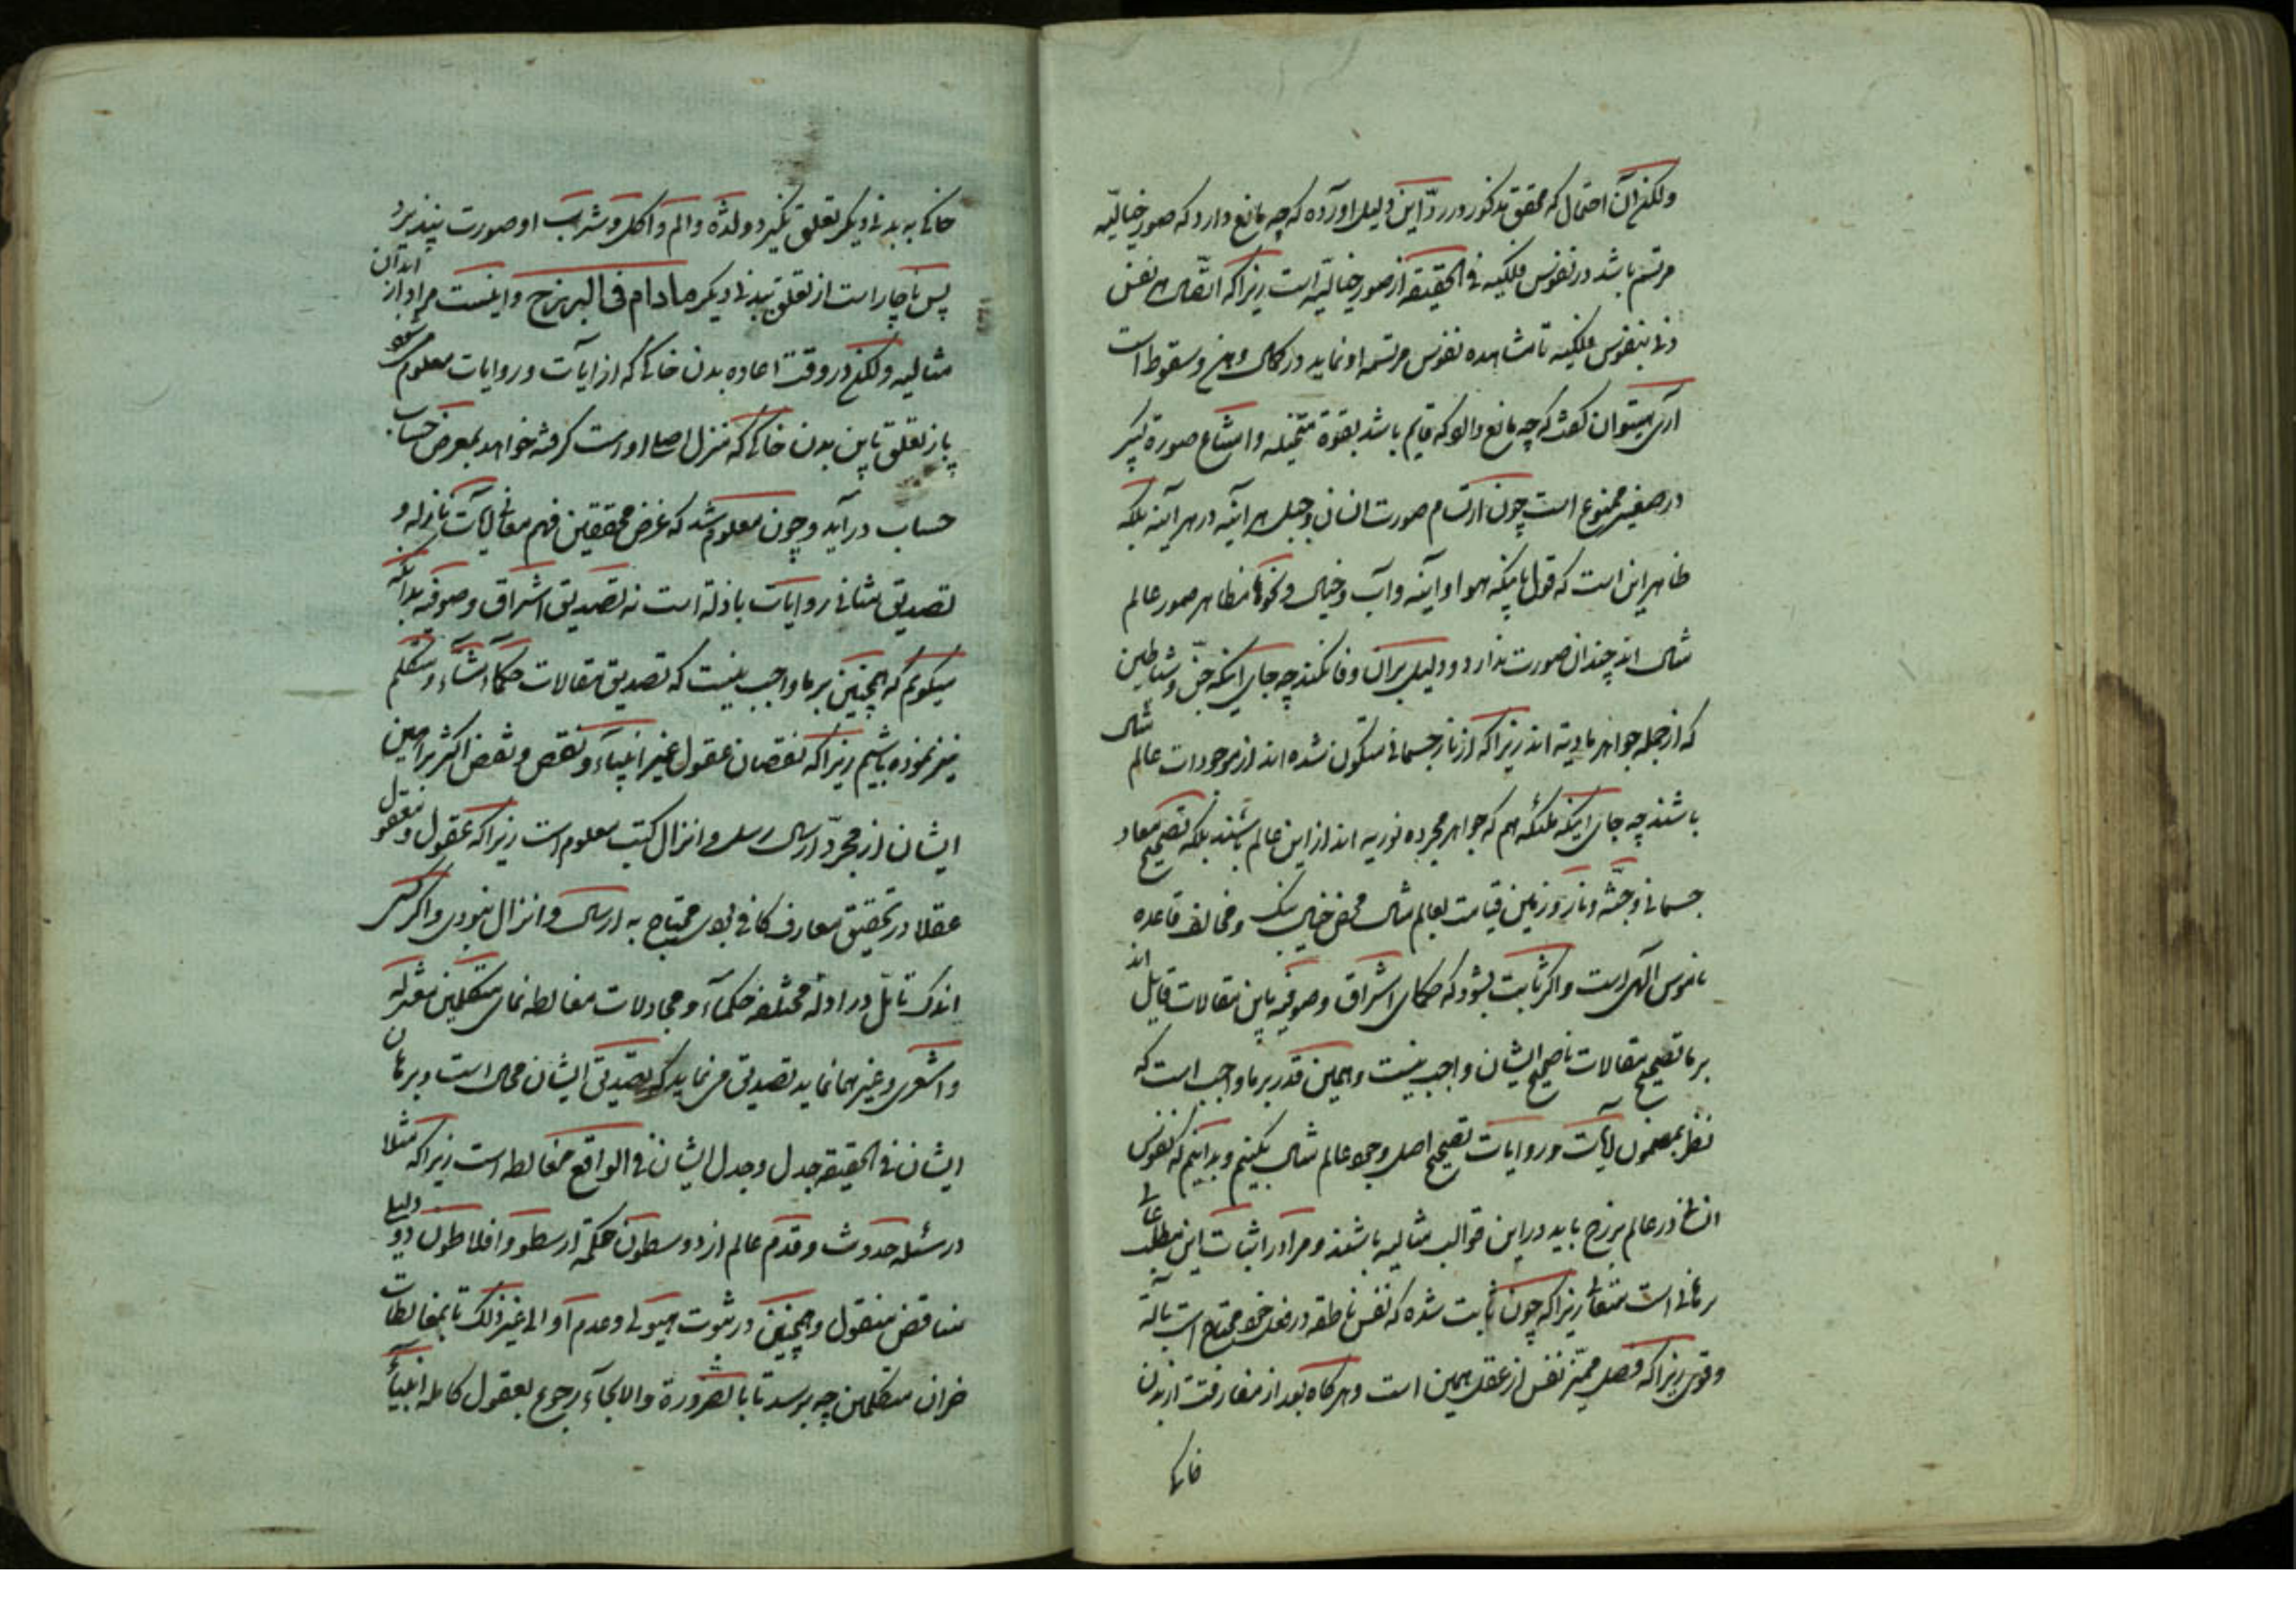 ولکن آن احتمال که محقق مذکور در ردّ این دلیل آورده که چه مانع دارد که صور خیالیّه
مرتسم باشد در نفوس فلکیه فی الحقیقة از صور خیالیه است زیرا که اتصال هر نفس
دنی بنفوس فلکیه تا مشاهده نفوس مرتسمه او نماید در کمال وهن و سقوط است
آری میتوان گفت که چه مانع دارد که قایم باشد بقوة متخیله و امتناع صورة کبیر
در صغیر ممنوع است چون ارتسام صورت انسان و جبل هر آینه در هر آینه بلکه
ظاهر این است که قول باینکه هوا و آینه و آب و خیال و نحوها مظاهر صور عالم
مثال اند چندان صورت ندارد و دلیل بر آن وفا نکند چه جای اینکه جنّ و شیاطین
که از جمله جواهر مادیة اند زیرا که از نار جسمانی متکون شده اند از موجودات عالم مثال
باشند چه جای اینکه ملئکه هم که جواهر مجرده نوریه اند از این عالم باشند بلکه تصحیح معاد
جسمانی و جنّة و نار و زمین قیامت بعالم مثال محض خیال و مخالف قاعده
ناموس الهی است و اگر ثابت بشود که حکمای اشراق و صوفیه باین مقالات قایل اند
بر ما تصحیح مقالات ناصحیح ایشان واجب نیست و همین قدر بر ما واجب است که
نظر بمضمون آیات و روایات تصحیح اصل وجود عالم مثال بکنیم و بدانیم که نفوس
انسانی در عالم برزخ باید در این قوالب مثالیه باشند و مرا در اثبات این مطلب عالی
برهانی است متقن زیرا که چون ثابت شده که نفس ناطقه در فعل خود محتاج است بآلة
و قوی زیرا که فصل ممیّز نفس از عقل همین است و هر گاه بعد از مفارقت از بدن
خاکی به بدنی دیگر تعلق نگیرد و لذّه و الم و اکل و شرب او صورت نپذیرد
پس ناچار است از تعلق ببدنی دیگر مادام فی البرزخ و اینست مراد از ابدان
مثالیه ولکن در وقت اعاده بدن خاکی که از آیات و روایات معلوم
باز تعلق باین بدن خاکی که منزل اصلی او است گرفته خواهد بمعرض حساب
حساب در آید و چون معلوم شد که غرض محققین فهم معانی آیات نازله و
تصدیق مثانی روایات باذله است نه تصدیق اشراق و صوفیه بدانکه
میگویم که همچنین بر ما واجب نیست که تصدیق مقالات حکماء مشّاء و متکلم
نیز نموده باشیم زیرا که نقصان عقول غیر انبیاء و نقص و نقض اکثر براهین
ایشان از مجرّد ارسال رسل و انزال کتب معلوم است زیرا که عقول و معقول
عقلا در تحقیق معارف کافی بودی محتاج به ارسال و انزال نبودی و اگر کسی
اندک تامّل در ادله مختلفه حکماء و مجادلات مغالطه نمای متکلمین معتزله
و اشعری و غیرهما نماید تصدیق می نماید که تصدیق ایشان محال است و برهان
ایشان فی الحقیقة جدل و جدل ایشان فی الواقع مغالطه است زیرا که مثلا
در مسئله حدوث و قدم عالم از دو اسطون حکمة ارسطو و افلاطون دو دلیل
متناقض منقول و همچنین در ثبوت هیولی و عدم او الی غیر ذلک تا بمغالطات
خران متکلمین چه برسد تا بالضرورة و الالجاء رجوع بعقول کامله انبیاء